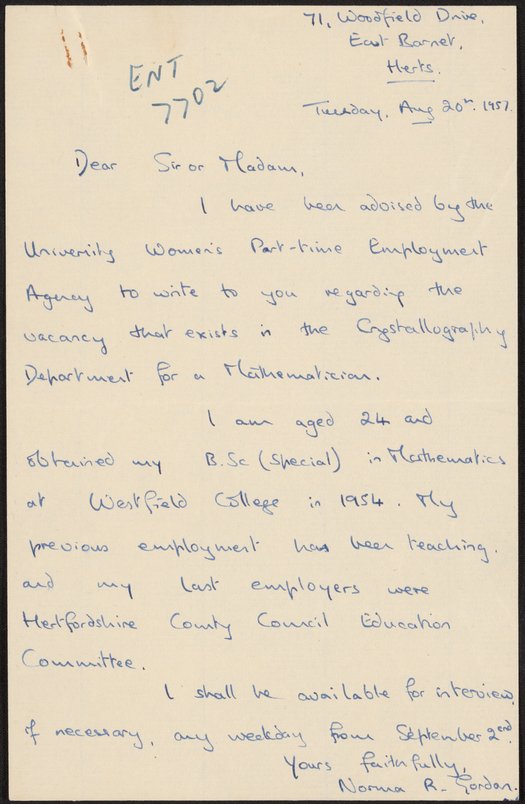 71, Woodfield Drive,
East Barnet,
Herts.
ENT
7702
Tuesday, Aug 20th. 1957.
Dear Sir or Madam,
I have been advised by the
University Women's Part-time Employment
Agency to write to you regarding the
vacancy that exists in the Crystallography
Department for a Mathematician.
I am aged 24 and
obtained my B.Sc (Special) in Mathematics
at Westfield College in 1954. My
previous employment has been teaching.
and my last employers were
Hertfordshire County Council Education
Committee.
I shall be available for interview,
if necessary, any weekday from September 2nd.
Yours faithfully,
Norma R. Gordan.